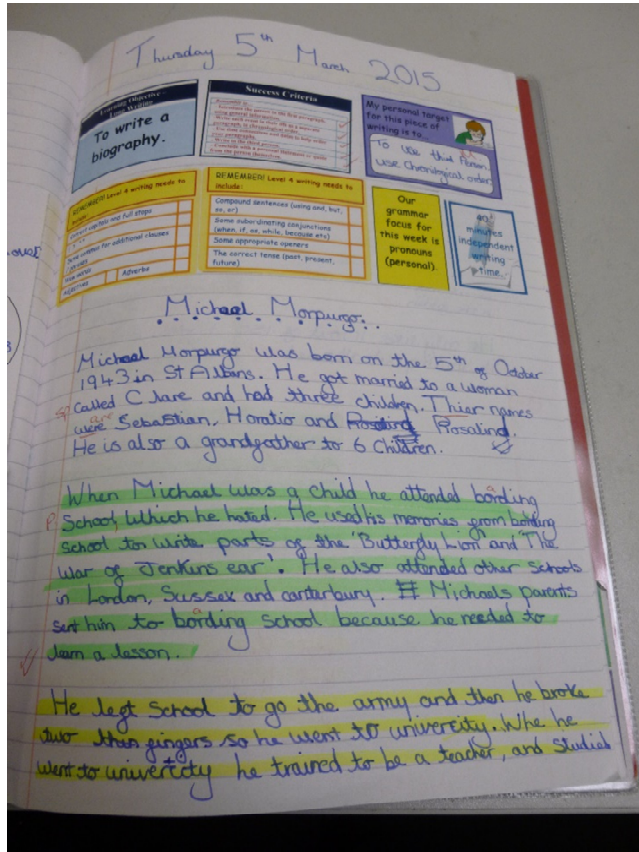 Thursday 5th March 2015
Learning Objective -
To write a
biography.
Success Criteria
My personal target
for this piece of
writing is to
To Use third Person
use Chronological order
REMEMBER! Level 4 writing needs to
REMEMBER! Level 4 writing needs to
include:
Compound sentences (using and, but,
so, or)
Some subordinating conjunctions
(when, if, as, while, because etc)
Some appropriate openers
The correct tense (past, present,
future)
Adverbs
Our
grammar
focus for
this week is
pronouns
(personal).
90
minutes
independent
writing
time.
Michael Morpurgo
Michael Morpurgo was born on the 5th of Octoer
1943 in St Albans. He got married to a woman
Called Clare and had three children. Thier names
are
were Sebastian, Horatio and Rosalind.
He is also a grandfather to 6 Children.
When Michael was a child he attended bording
School, Which he hated. He used his memories from bording
school to write parts of the 'Butterfly Lion' and 'The
War of Jenkins ear'. He also attended other schools
in London, Sussex and canterbury. Michaels parents
sent him to bording school because he needed to
learn a lesson.
He left school to go the army and then he broke
two fingers so he went to univercity. Whe he
went to univercity he trained to be a teacher, and studied